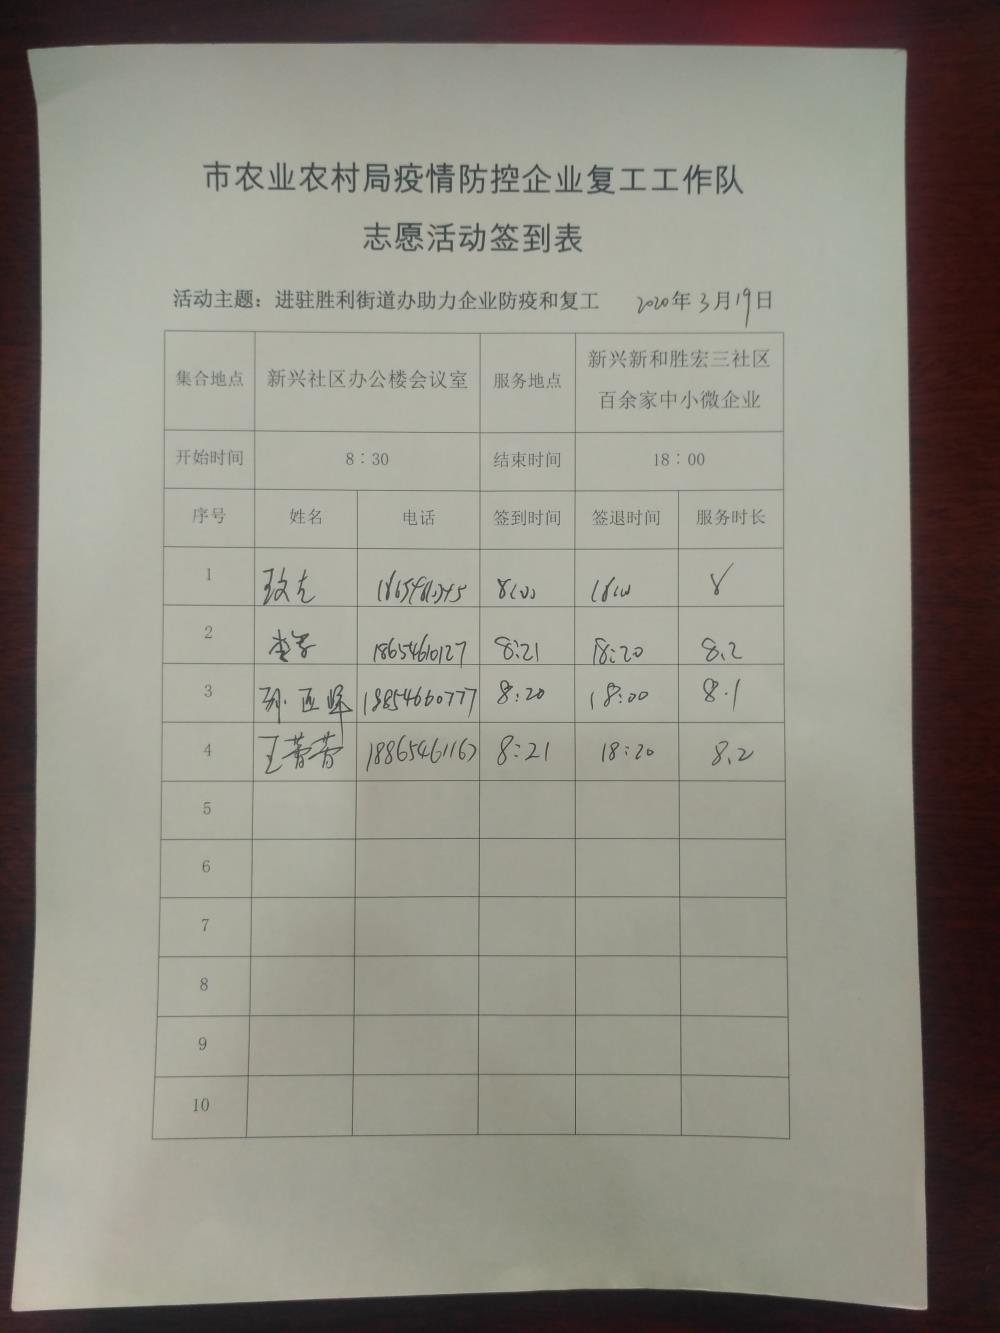 市农业农村局疫情防控企业复工工作队
志愿活动签到表
活动主题：进驻胜利街道办助力企业防疫和复工 2020年3月19日
集合地点 新兴社区办公楼会议室 服务地点 新兴新和胜宏三社区
百余家中小微企业
开始时间 8：30 结束时间 18：00
序号 姓名 电话 签到时间 签退时间 服务时长
1 8:00 8
2 18654610127 8:21 18:20 8.2
3 13854660777 8:20 18:00 8.1
4 王蕾蕾 18865461167 8:21 18:20 8.2
5
6
7
8
9
10